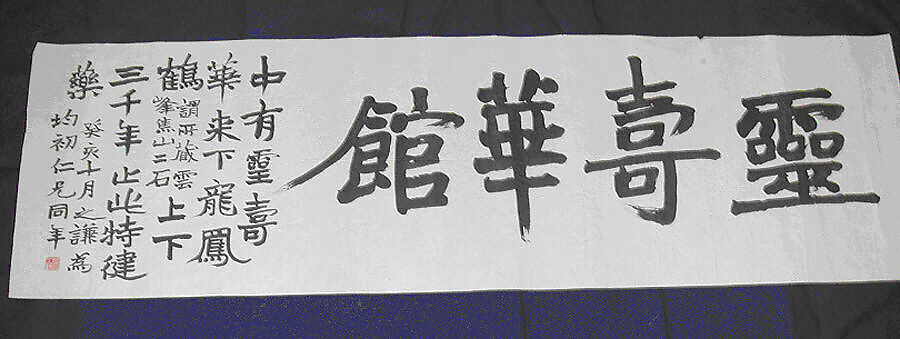 靈壽華館
中有靈壽
華来下龍鳳
鶴
謂所藏雲
峯焦山二石
上下
三千年止此特健
藥
癸亥十月之謙為
均初仁兄同年